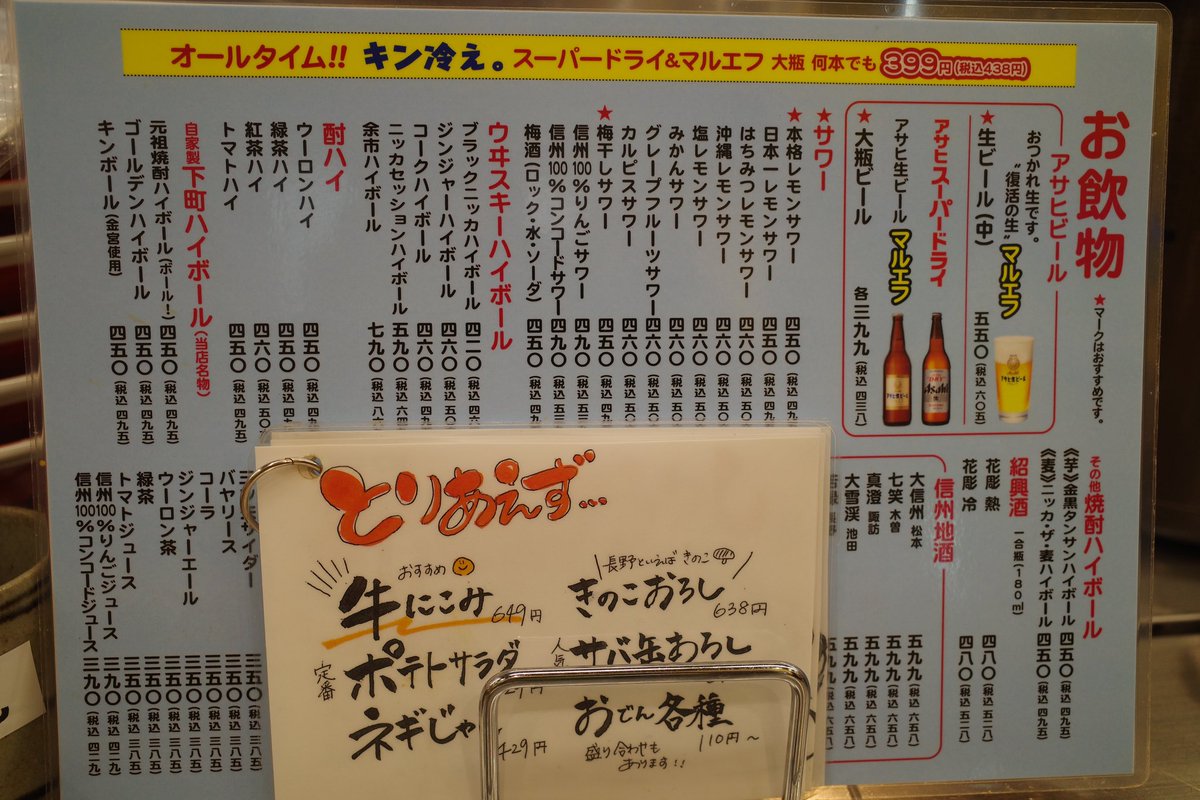 オールタイム!! キン冷え。スーパードライ&マルエフ 大瓶 何本でも 399円(税込438円)
お飲物
★マークはおすすめです。
アサヒビール
おつかれ生です。
"復活の生" マルエフ
★生ビール(中) 五五〇(税込 六〇五)
アサヒスーパードライ
アサヒ生ビール マルエフ
★大瓶ビール 各三九九(税込 四三八)
★サワー
★本格レモンサワー 四五〇(税込 四九五)
日本一レモンサワー 四五〇
はちみつレモンサワー 四六〇
沖縄レモンサワー 四六〇
塩レモンサワー 四六〇
みかんサワー 四六〇
グレープフルーツサワー 四六〇
カルピスサワー 四六〇
★梅干しサワー 四五〇
信州100%りんごサワー 四五〇
信州100%コンコードサワー 四九〇
梅酒(ロック・水・ソーダ) 四五〇
ウヰスキーハイボール
ブラックニッカハイボール 四二〇
ジンジャーハイボール 四五〇
コークハイボール 四六〇
ニッカセッションハイボール 五九〇
余市ハイボール 七九〇
酎ハイ
ウーロンハイ 四五〇(税込 四九五)
緑茶ハイ 四五〇(税込 四九五)
紅茶ハイ 四六〇
トマトハイ 四五〇(税込 四九五)
自家製 下町ハイボール(当店名物)
元祖焼酎ハイボール(ボール!) 四五〇(税込 四九五)
ゴールデンハイボール 四五〇(税込 四九五)
キンボール(金宮使用) 四五〇(税込 四九五)
その他 焼酎ハイボール
《芋》金黒タンサンハイボール 四五〇(税込 四九五)
《麦》ニッカ・ザ・麦ハイボール 四五〇(税込 四九五)
紹興酒 一合瓶(180ml)
花彫 熱 四八〇(税込 五二八)
花彫 冷 四八〇(税込 五二八)
信州地酒
大信州 松本 五九九(税込 六五八)
七笑 木曽 五九九(税込 六五八)
真澄 諏訪 五九九(税込 六五八)
大雪渓 池田 五九九(税込 六五八)
五九九(税込 六五八)
サイダー
バヤリース 三五〇(税込 三八五)
コーラ 三五〇(税込 三八五)
ジンジャーエール 三五〇(税込 三八五)
ウーロン茶 三五〇(税込 三八五)
緑茶 三五〇(税込 三八五)
トマトジュース 三五〇(税込 三八五)
信州100%りんごジュース 三九〇(税込 四二九)
信州100%コンコードジュース 三九〇(税込 四二九)
とりあえず…
おすすめ
牛にこみ 649円
定番
ポテトサラダ
ネギじゃ 429円
長野といえばきのこ
きのこおろし 638円
人気
サバ缶おろし
おでん各種 110円〜
盛り合わせもあります!!